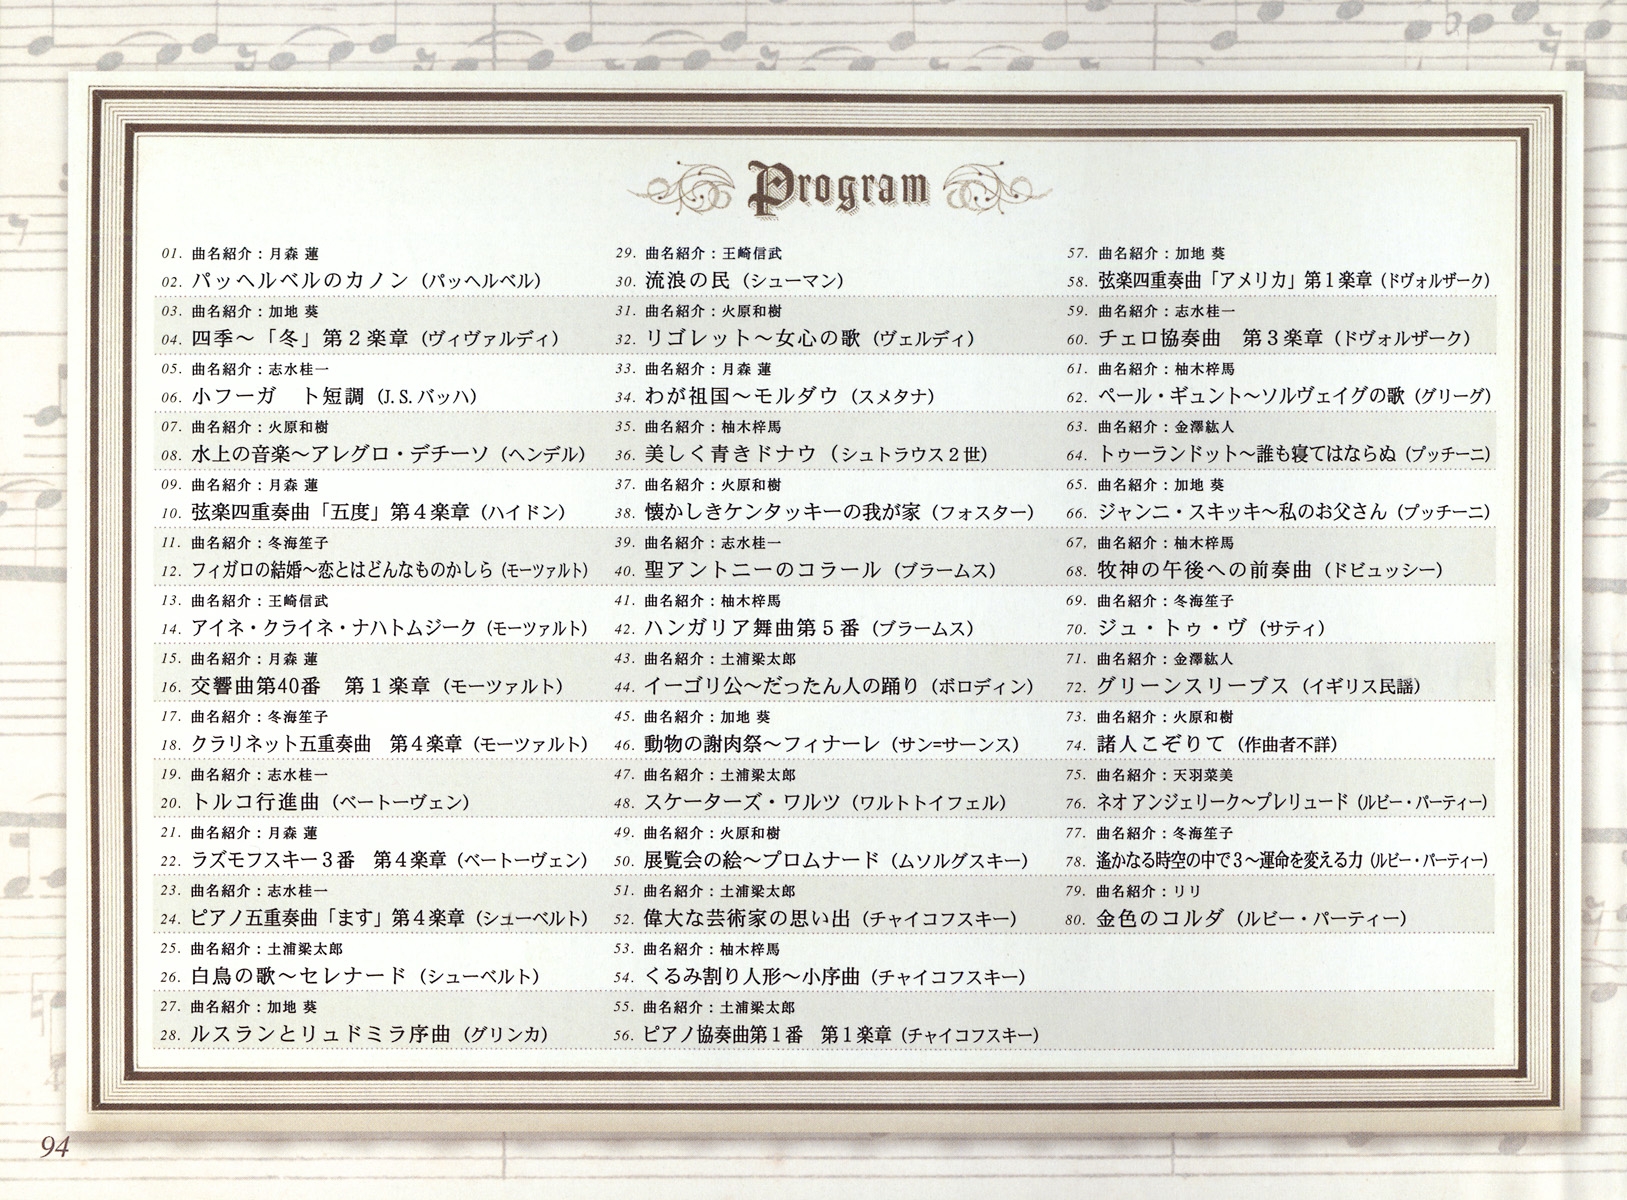 Program
01. 曲名紹介：月森 蓮
02. パッヘルベルのカノン（パッヘルベル）
03. 曲名紹介：加地 葵
04. 四季〜「冬」第２楽章（ヴィヴァルディ）
05. 曲名紹介：志水桂一
06. 小フーガ　ト短調（J.S.バッハ）
07. 曲名紹介：火原和樹
08. 水上の音楽〜アレグロ・デチーソ（ヘンデル）
09. 曲名紹介：月森 蓮
10. 弦楽四重奏曲「五度」第４楽章（ハイドン）
11. 曲名紹介：冬海笙子
12. フィガロの結婚〜恋とはどんなものかしら（モーツァルト）
13. 曲名紹介：王崎信武
14. アイネ・クライネ・ナハトムジーク（モーツァルト）
15. 曲名紹介：月森 蓮
16. 交響曲第40番　第１楽章（モーツァルト）
17. 曲名紹介：冬海笙子
18. クラリネット五重奏曲　第４楽章（モーツァルト）
19. 曲名紹介：志水桂一
20. トルコ行進曲（ベートーヴェン）
21. 曲名紹介：月森 蓮
22. ラズモフスキー３番　第４楽章（ベートーヴェン）
23. 曲名紹介：志水桂一
24. ピアノ五重奏曲「ます」第４楽章（シューベルト）
25. 曲名紹介：土浦梁太郎
26. 白鳥の歌〜セレナード（シューベルト）
27. 曲名紹介：加地 葵
28. ルスランとリュドミラ序曲（グリンカ）
29. 曲名紹介：王崎信武
30. 流浪の民（シューマン）
31. 曲名紹介：火原和樹
32. リゴレット〜女心の歌（ヴェルディ）
33. 曲名紹介：月森 蓮
34. わが祖国〜モルダウ（スメタナ）
35. 曲名紹介：柚木梓馬
36. 美しく青きドナウ（シュトラウス２世）
37. 曲名紹介：火原和樹
38. 懐かしきケンタッキーの我が家（フォスター）
39. 曲名紹介：志水桂一
40. 聖アントニーのコラール（ブラームス）
41. 曲名紹介：柚木梓馬
42. ハンガリア舞曲第５番（ブラームス）
43. 曲名紹介：土浦梁太郎
44. イーゴリ公〜だったん人の踊り（ボロディン）
45. 曲名紹介：加地 葵
46. 動物の謝肉祭〜フィナーレ（サン=サーンス）
47. 曲名紹介：土浦梁太郎
48. スケーターズ・ワルツ（ワルトトイフェル）
49. 曲名紹介：火原和樹
50. 展覧会の絵〜プロムナード（ムソルグスキー）
51. 曲名紹介：土浦梁太郎
52. 偉大な芸術家の思い出（チャイコフスキー）
53. 曲名紹介：柚木梓馬
54. くるみ割り人形〜小序曲（チャイコフスキー）
55. 曲名紹介：土浦梁太郎
56. ピアノ協奏曲第１番　第１楽章（チャイコフスキー）
57. 曲名紹介：加地 葵
58. 弦楽四重奏曲「アメリカ」第１楽章（ドヴォルザーク）
59. 曲名紹介：志水桂一
60. チェロ協奏曲　第３楽章（ドヴォルザーク）
61. 曲名紹介：柚木梓馬
62. ペール・ギュント〜ソルヴェイグの歌（グリーグ）
63. 曲名紹介：金澤紘人
64. トゥーランドット〜誰も寝てはならぬ（プッチーニ）
65. 曲名紹介：加地 葵
66. ジャンニ・スキッキ〜私のお父さん（プッチーニ）
67. 曲名紹介：柚木梓馬
68. 牧神の午後への前奏曲（ドビュッシー）
69. 曲名紹介：冬海笙子
70. ジュ・トゥ・ヴ（サティ）
71. 曲名紹介：金澤紘人
72. グリーンスリーブス（イギリス民謡）
73. 曲名紹介：火原和樹
74. 諸人こぞりて（作曲者不詳）
75. 曲名紹介：天羽菜美
76. ネオ アンジェリーク〜プレリュード（ルビー・パーティー）
77. 曲名紹介：冬海笙子
78. 遙かなる時空の中で３〜運命を変える力（ルビー・パーティー）
79. 曲名紹介：リリ
80. 金色のコルダ（ルビー・パーティー）
94